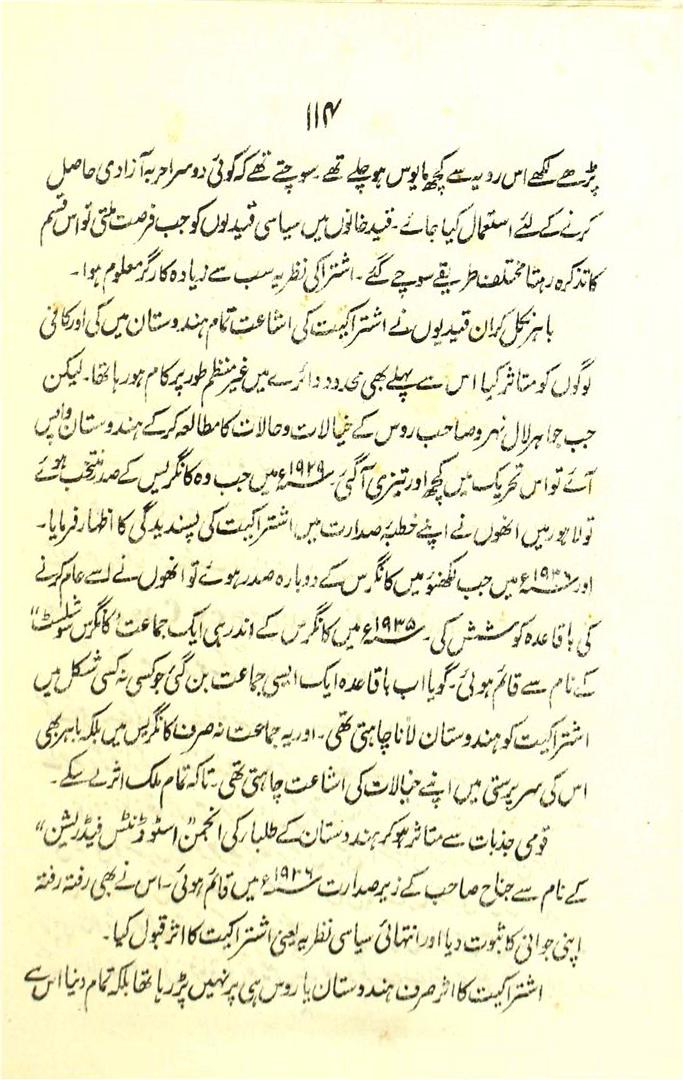 ۱۱۴
پڑھے لکھے اس رویہ سے کچھ مایوس ہو چلے تھے۔ سوچتے تھے کہ کوئی دوسرا حربہ آزادی حاصل
کرنے کے لئے استعمال کیا جائے۔ قید خانوں میں سیاسی قیدیوں کو جب فرصت ملتی تو اس قسم
کا تذکرہ رہتا مختلف طریقے سوچے گئے۔ اشتراکی نظریہ سب سے زیادہ کارگر معلوم ہوا۔
باہر نکل کر ان قیدیوں نے اشتراکیت کی اشاعت تمام ہندوستان میں کی اور کافی
لوگوں کو متاثر کیا اس سے پہلے بھی محدود دائرے میں غیر منظم طور پر کام ہو رہا تھا۔ لیکن
جب جواہر لال نہرو صاحب روس کے خیالات و حالات کا مطالعہ کرکے ہندوستان واپس
آئے تو اس تحریک میں کچھ اور تیزی آگئی۔ ۱۹۲۹ء میں جب وہ کانگریس کے صدر منتخب ہوئے
تو لاہور میں انھوں نے اپنے خطبۂ صدارت میں اشتراکیت کی پسندیدگی کا اظہار فرمایا۔
اور ۱۹۳۶ء میں جب لکھنؤ میں کانگرس کے دوبارہ صدر ہوئے تو انھوں نے اسے عام کرنے
کی باقاعدہ کوشش کی۔ ۱۹۳۵ء میں کانگرس کے اندر ہی ایک جماعت ”کانگرس سوشلسٹ“
کے نام سے قائم ہوئی۔ گویا اب باقاعدہ ایک ایسی جماعت بن گئی جو کسی نہ کسی شکل میں
اشتراکیت کو ہندوستان لانا چاہتی تھی۔ اور یہ جماعت نہ صرف کانگریس میں بلکہ باہر بھی
اس کی سرپرستی میں اپنے خیالات کی اشاعت چاہتی تھی۔ تاکہ تمام ملک اثر لے سکے۔
قومی جذبات سے متاثر ہو کر ہندوستان کے طلبار کی انجمن ”اسٹوڈنٹس فیڈریشن“
کے نام سے جناح صاحب کے زیر صدارت ۱۹۳۶ء میں قائم ہوئی۔ اس نے بھی رفتہ رفتہ
اپنی جوانی کا ثبوت دیا اور انتہائی سیاسی نظریہ یعنی اشتراکیت کا اثر قبول کیا۔
اشتراکیت کا اثر صرف ہندوستان یا روس ہی پر نہیں پڑ رہا تھا بلکہ تمام دنیا اس سے